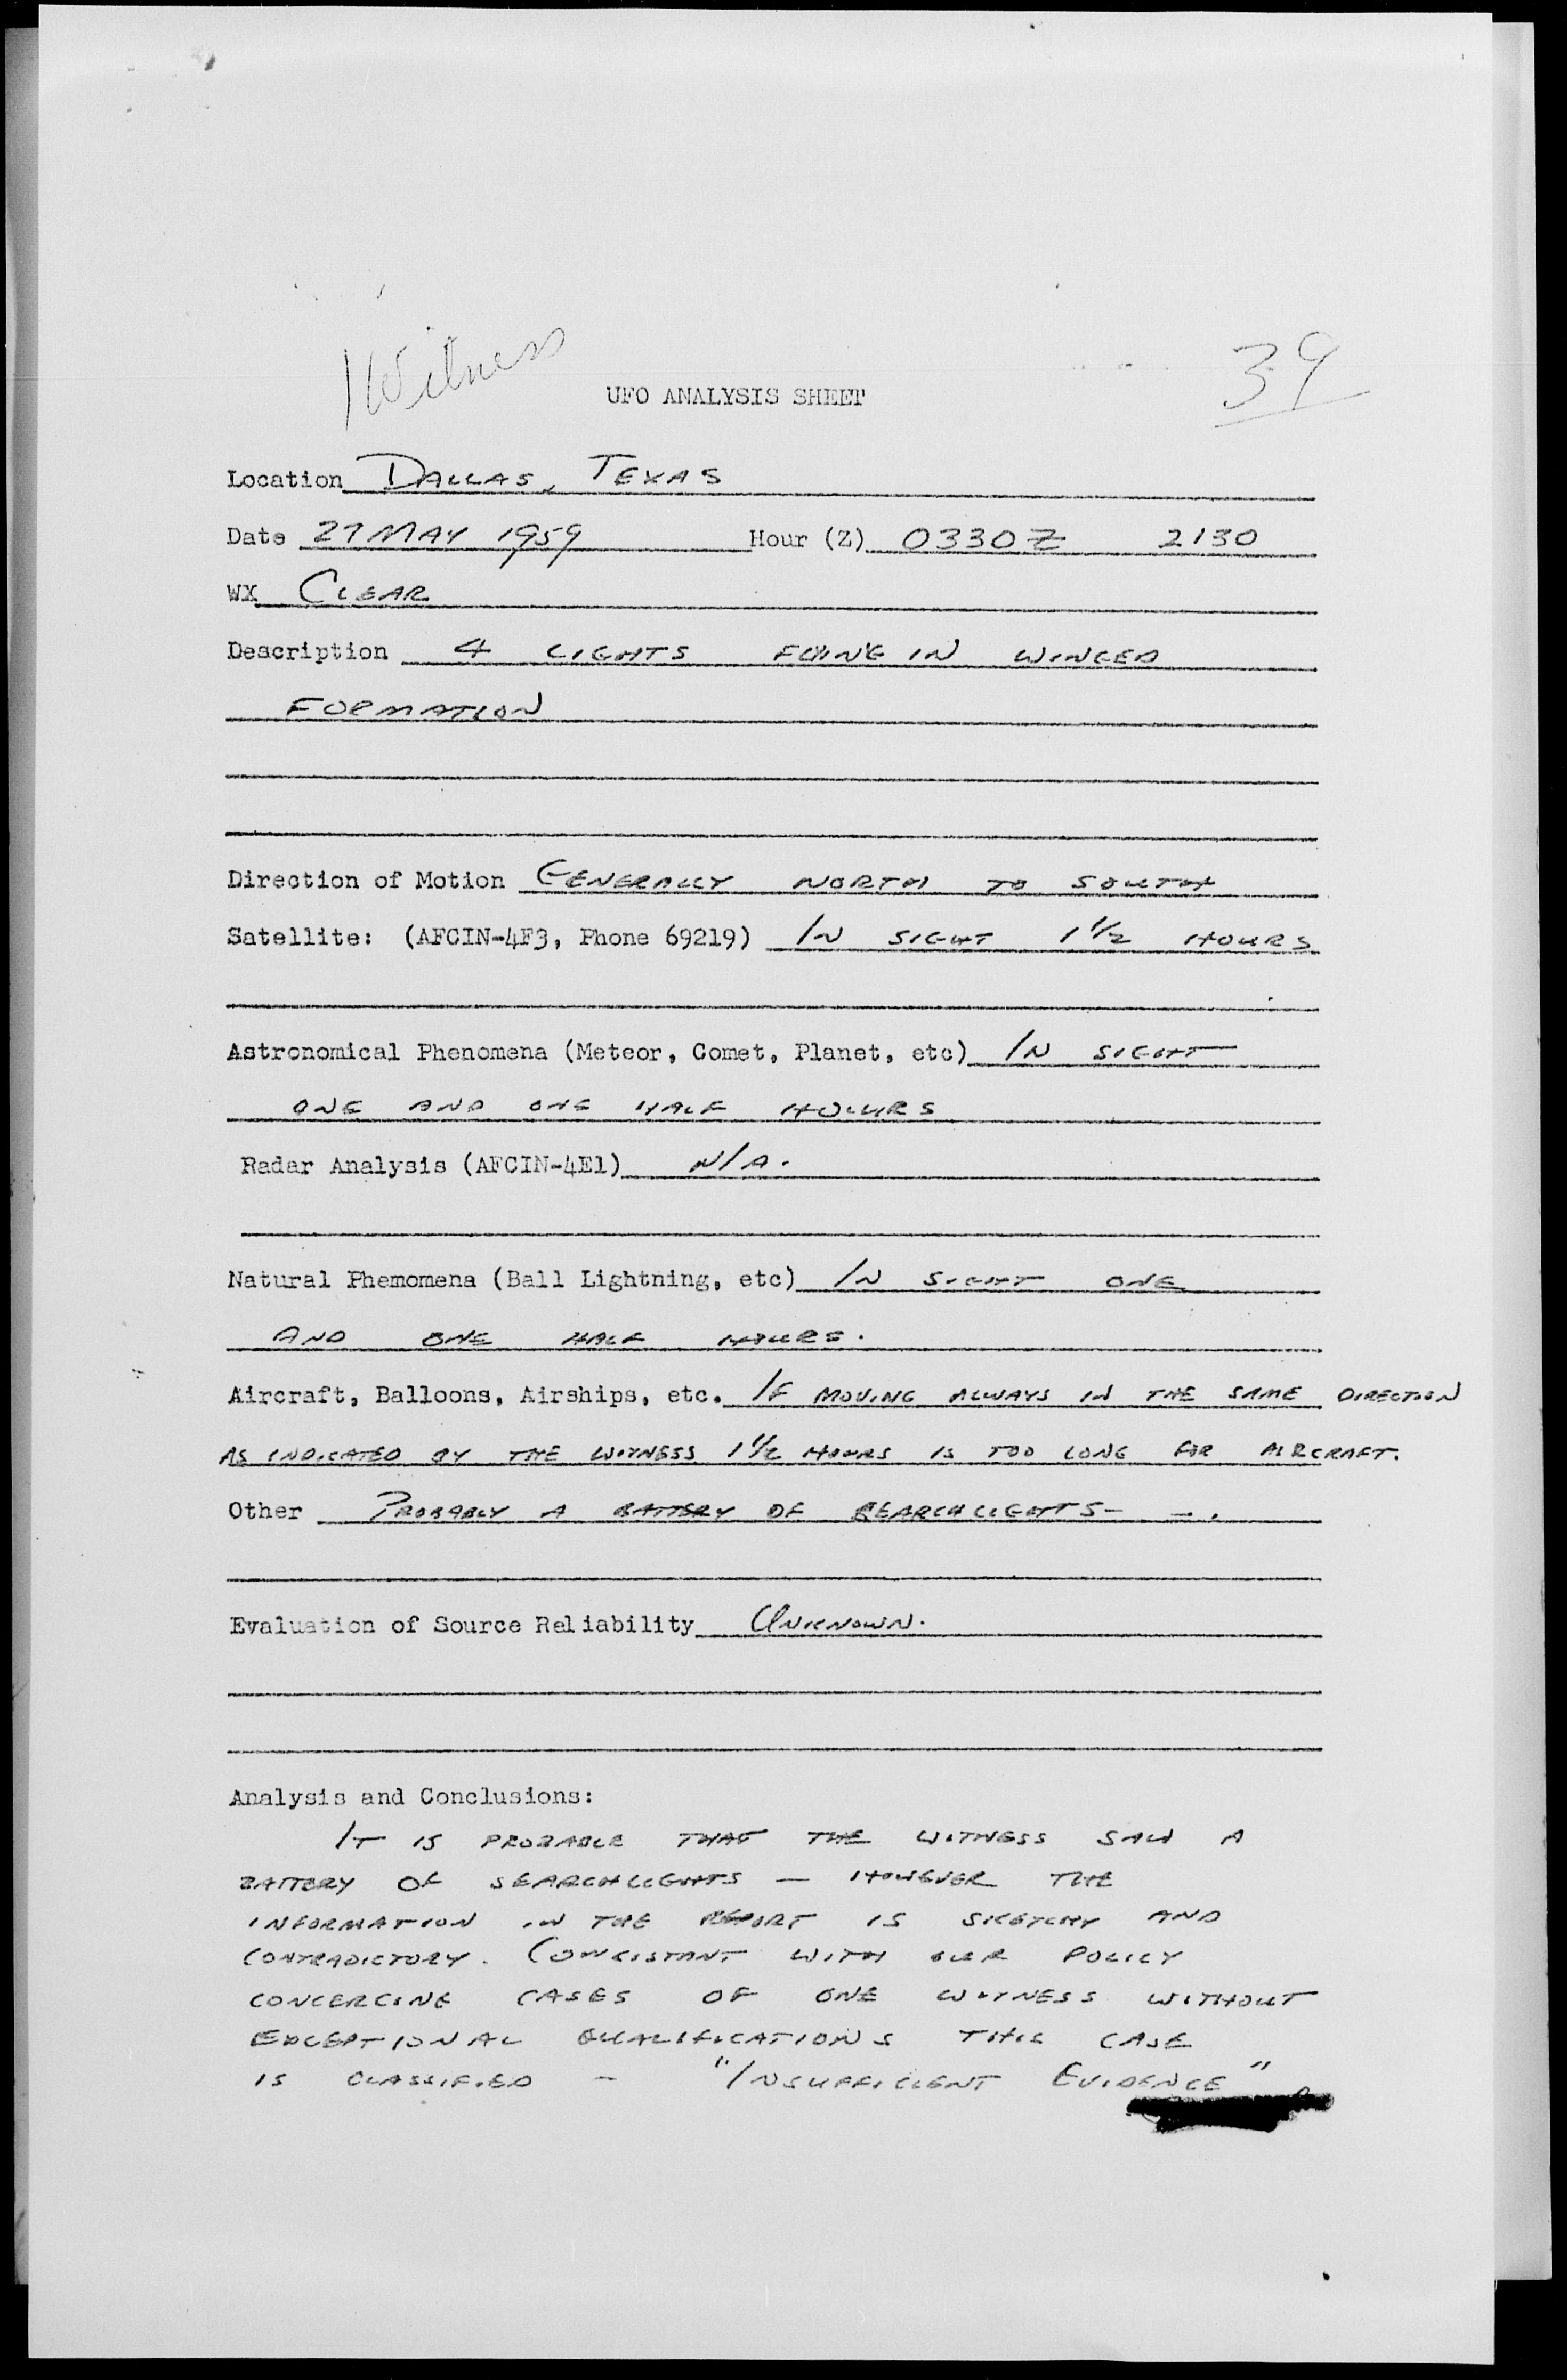 Witness
39
UFO ANALYSIS SHEET
Location DALLAS, TEXAS
Date 27 MAY 1959 Hour (Z) 0330Z 2130
WX CLEAR
Description 4 LIGHTS FLYING IN WINGED
FORMATION
Direction of Motion GENERALLY NORTH TO SOUTH
Satellite: (AFCIN-4F3, Phone 69219) IN SIGHT 1 1/2 HOURS
Astronomical Phenomena (Meteor, Comet, Planet, etc) IN SIGHT
ONE AND ONE HALF HOURS
Radar Analysis (AFCIN-4E1) N/A.
Natural Phemomena (Ball Lightning, etc) IN SIGHT ONE
AND ONE HALF HOURS.
Aircraft, Balloons, Airships, etc. IF MOVING ALWAYS IN THE SAME DIRECTION
AS INDICATED BY THE WITNESS 1 1/2 HOURS IS TOO LONG FOR AIRCRAFT.
Other PROBABLY A BATTERY OF SEARCHLIGHTS-
Evaluation of Source Reliability UNKNOWN.
Analysis and Conclusions:
IT IS PROBABLE THAT THE WITNESS SAW A
BATTERY OF SEARCHLIGHTS — HOWEVER THE
INFORMATION IN THE REPORT IS SKETCHY AND
CONTRADICTORY. CONSISTANT WITH OUR POLICY
CONCERCING CASES OF ONE WITNESS WITHOUT
EXCEPTIONAL QUALIFICATIONS THIS CASE
IS CLASSIFIED - "INSUFFICIENT EVIDENCE"